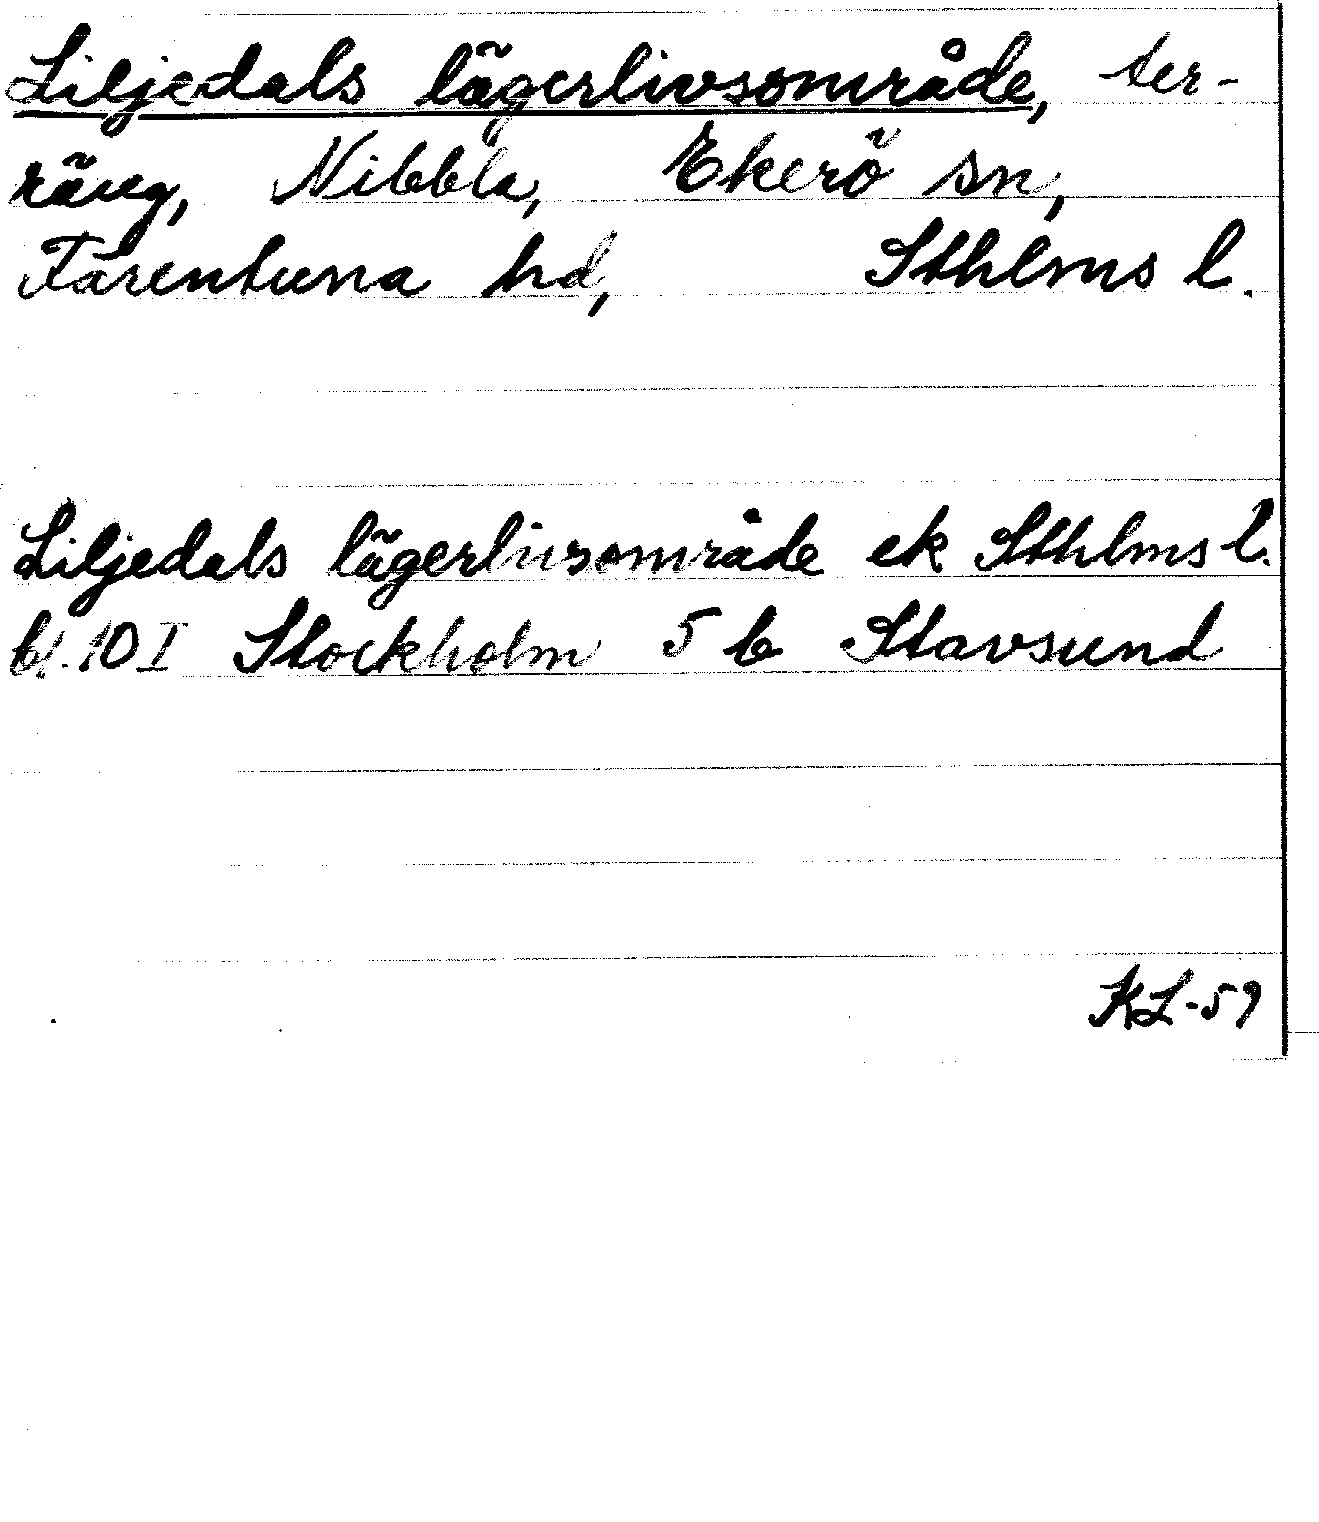 Liljedals lägerlivsområde, ter-
räng, Nibbla, Ekerö sn,
Färentuna hd, Sthlms l.
Liljedals lägerlivsområde ek Sthlms l.
bl. 10 I Stockholm 5 b Stavsund
KL-59